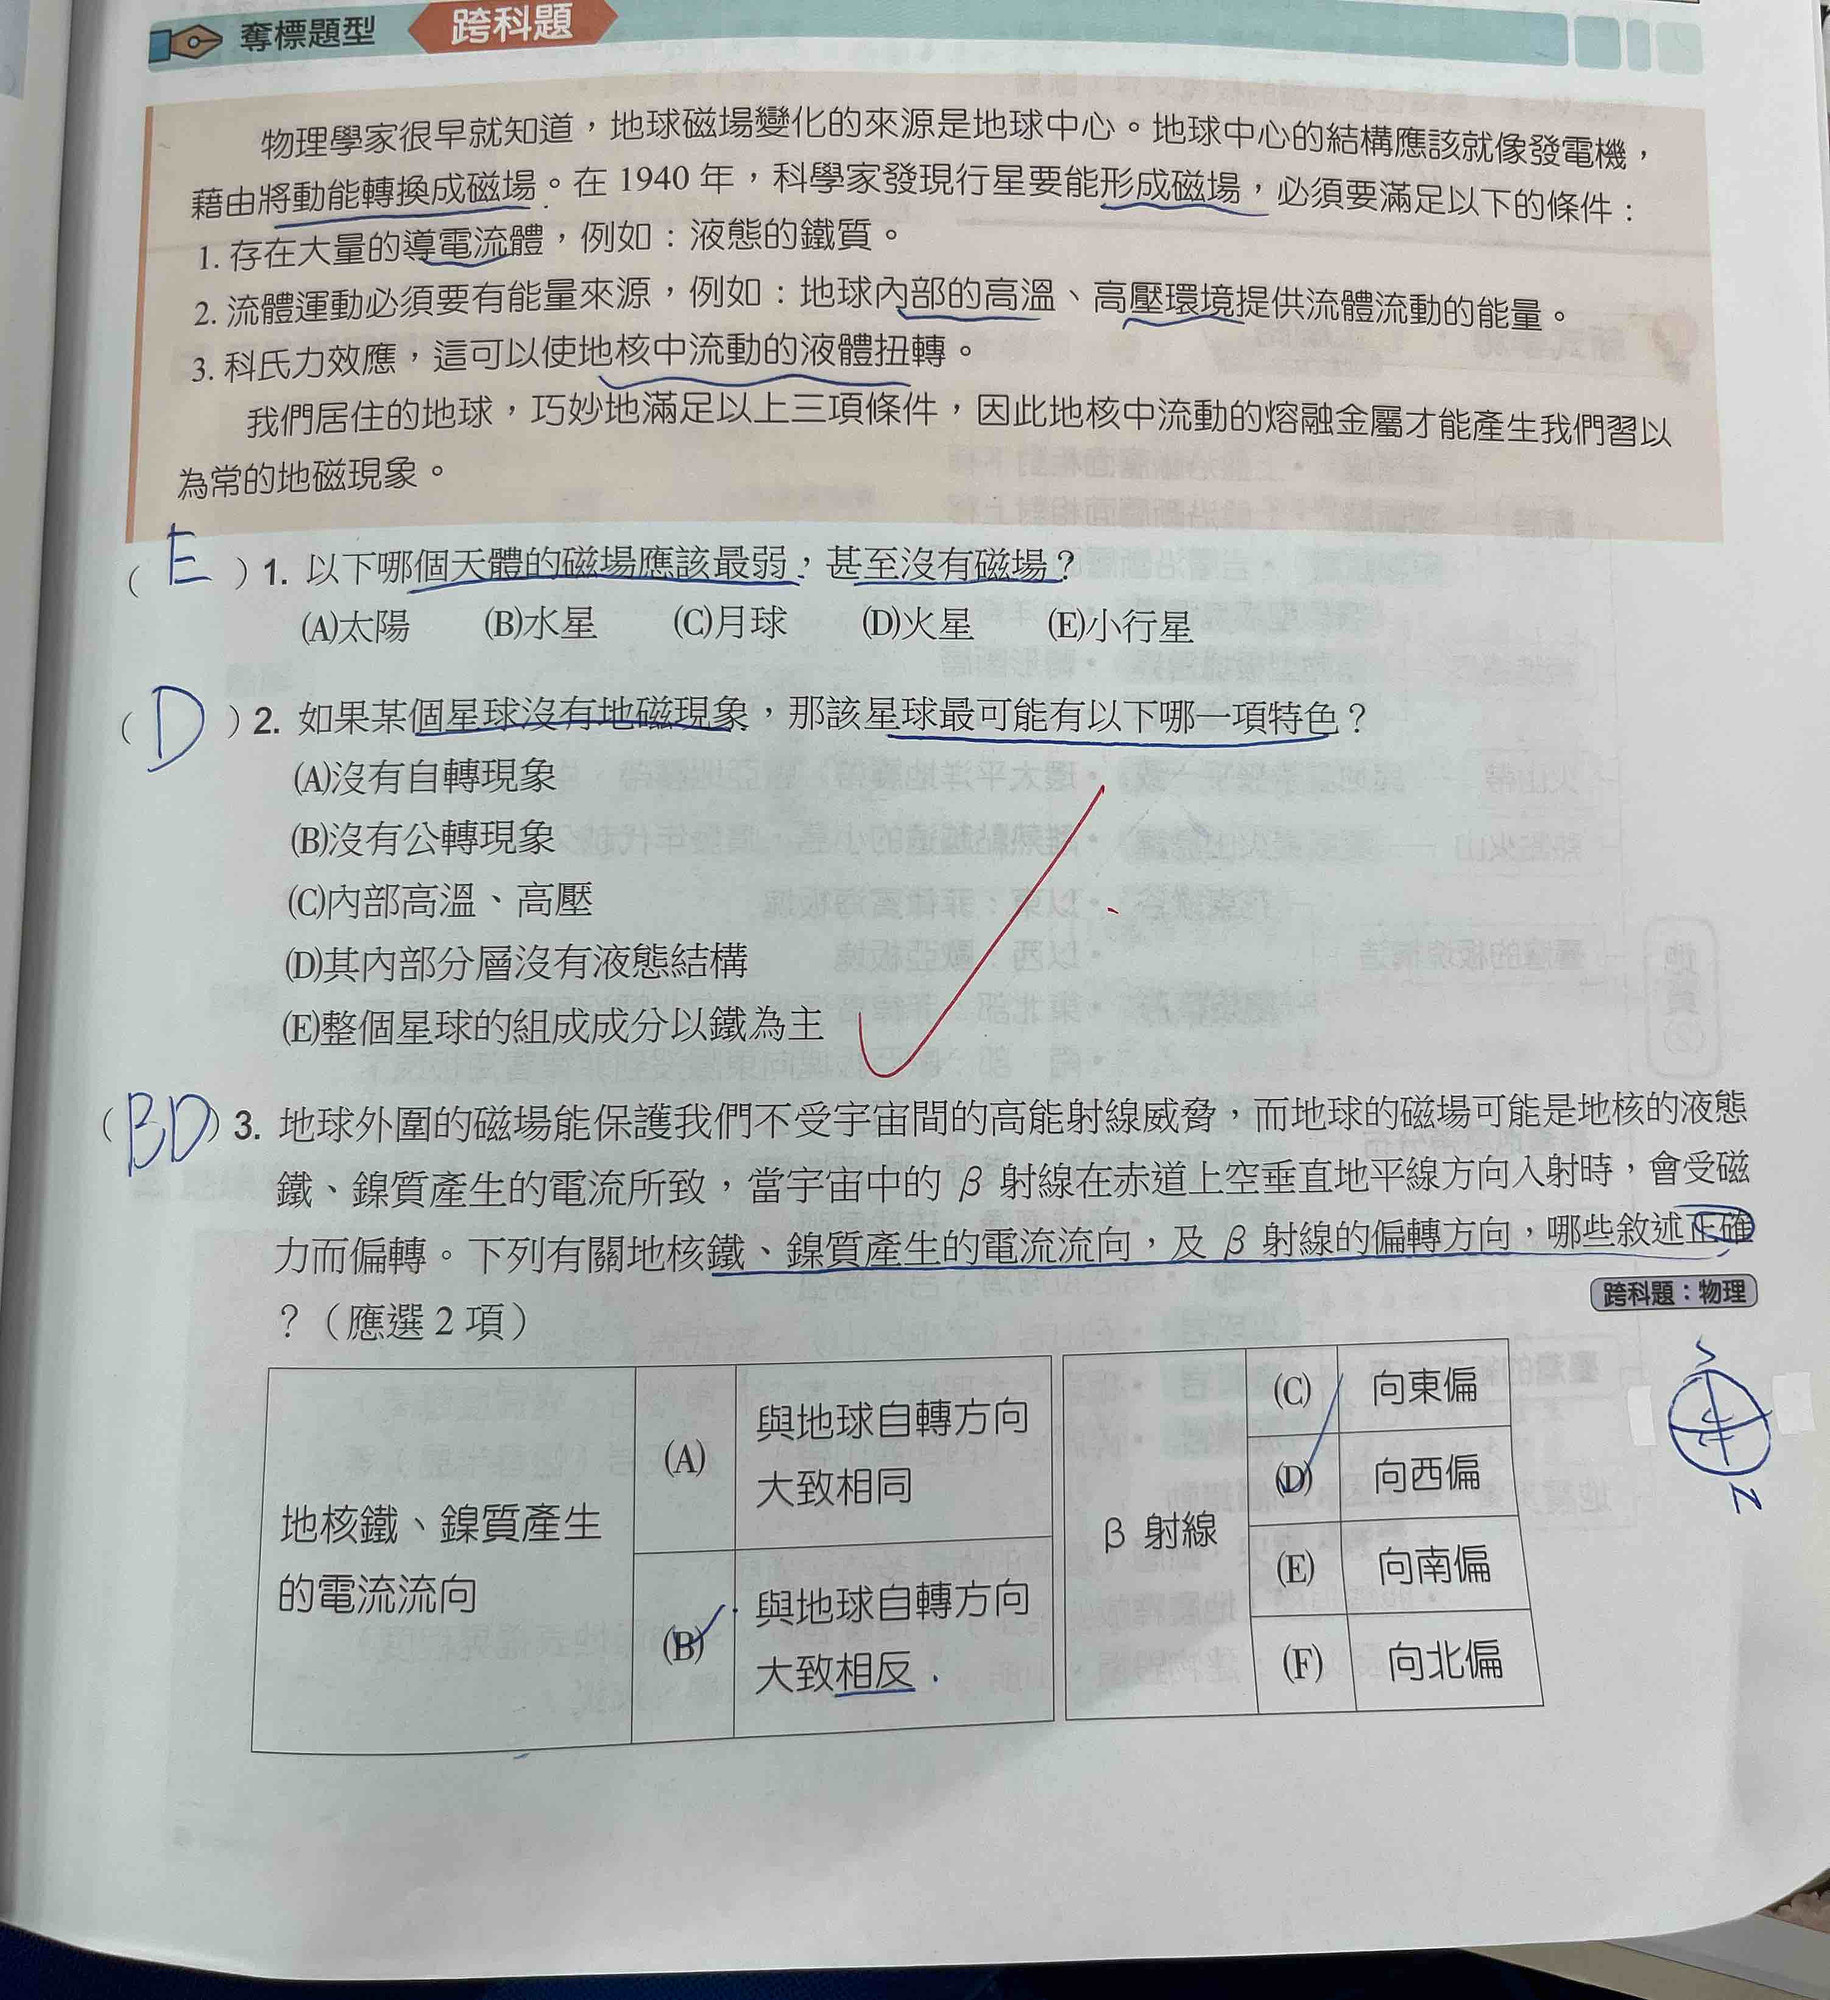 奪標題型 跨科題
物理學家很早就知道，地球磁場變化的來源是地球中心。地球中心的結構應該就像發電機，
藉由將動能轉換成磁場。在 1940 年，科學家發現行星要能形成磁場，必須要滿足以下的條件：
1. 存在大量的導電流體，例如：液態的鐵質。
2. 流體運動必須要有能量來源，例如：地球內部的高溫、高壓環境提供流體流動的能量。
3. 科氏力效應，這可以使地核中流動的液體扭轉。
我們居住的地球，巧妙地滿足以上三項條件，因此地核中流動的熔融金屬才能產生我們習以
為常的地磁現象。
（ E ）1. 以下哪個天體的磁場應該最弱，甚至沒有磁場？
(A)太陽 (B)水星 (C)月球 (D)火星 (E)小行星
（ D ）2. 如果某個星球沒有地磁現象，那該星球最可能有以下哪一項特色？
(A)沒有自轉現象
(B)沒有公轉現象
(C)內部高溫、高壓
(D)其內部分層沒有液態結構
(E)整個星球的組成成分以鐵為主
（BD）3. 地球外圍的磁場能保護我們不受宇宙間的高能射線威脅，而地球的磁場可能是地核的液態
鐵、鎳質產生的電流所致，當宇宙中的 β 射線在赤道上空垂直地平線方向入射時，會受磁
力而偏轉。下列有關地核鐵、鎳質產生的電流流向，及 β 射線的偏轉方向，哪些敘述正確
？（應選 2 項）
跨科題：物理
地核鐵、鎳質產生
的電流流向
(A) 與地球自轉方向
大致相同
(B) 與地球自轉方向
大致相反
β 射線
(C) 向東偏
(D) 向西偏
(E) 向南偏
(F) 向北偏
S
N